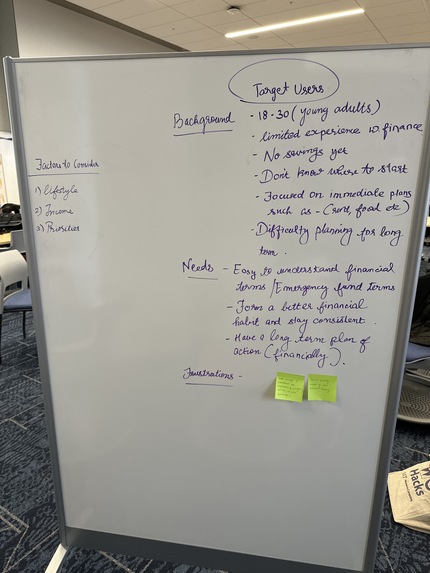 Target Users
Background
- 18-30 (young adults)
- limited experience w finance
- No savings yet
- Don't know where to start
- Focused on immediate plans
such as - (rent, food etc)
- Difficulty planning for long
term.
Factors to Consider
1) lifestyle
2) Income
3) Priorities
Needs - Easy to understand financial
terms / Emergency fund terms
- Form a better financial
habit and stay consistent.
- Have a long term plan of
action (financially).
Frustrations -
Hacks